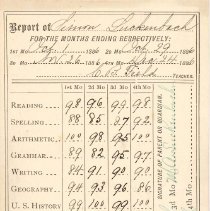 Report of Simon Luckenbach
FOR THE MONTHS ENDING RESPECTIVELY:
1st Mo 1886 2d Mo Oct 29 1886
3d Mo Nov 26 1886 4th Mo 1886
Field TEACHER.
1st Mo 2d Mo 3d Mo 4th Mo
READING, 98 96 99 98
SPELLING, 88 85 92
ARITHMETIC, 100 98 95 100
GRAMMAR, 89 82 95 97
WRITING, 84 91 90 90
GEOGRAPHY, 94 93 96 86
U. S. HISTORY 99 100 99 100
SIGNATURE OF PARENT OR GUARDIAN.
3d Mo
4th Mo